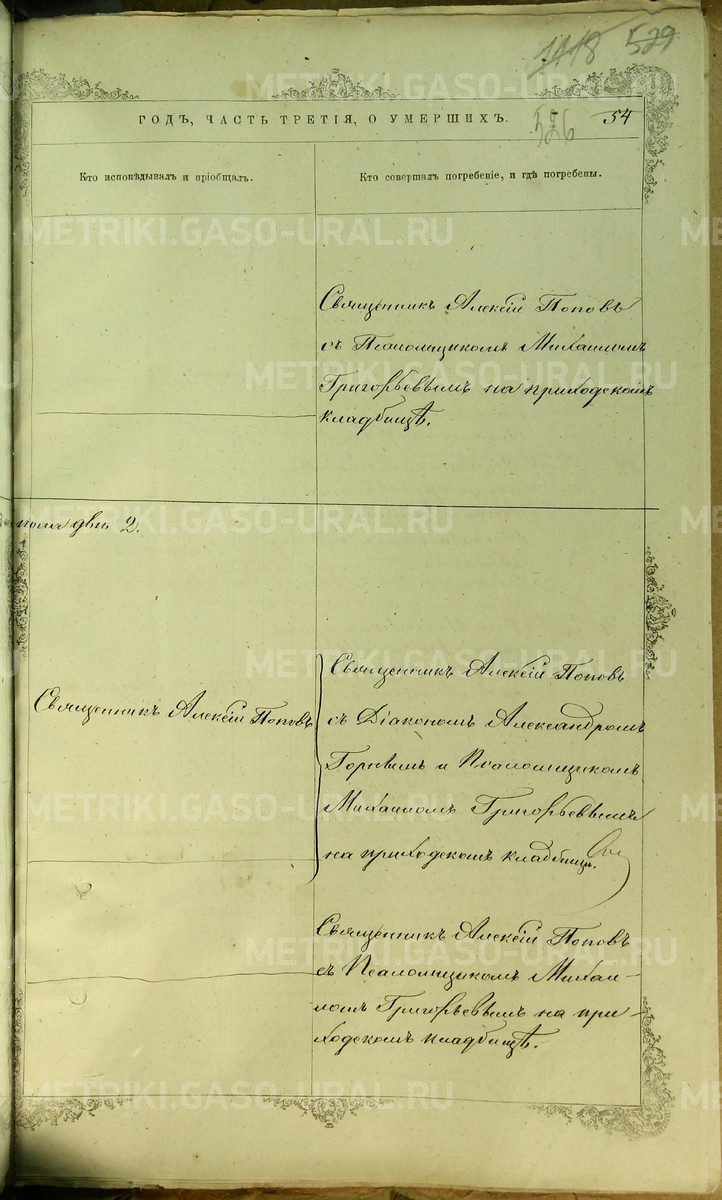 529
526
54
ГОДЪ, ЧАСТЬ ТРЕТІЯ, О УМЕРШИХЪ.
Кто исповѣдывалъ и пріобщалъ.
Кто совершалъ погребеніе, и гдѣ погребены.
Священникъ Алексій Поповъ
съ Псаломщикомъ Михаиломъ
Григорьевымъ на приходскомъ
кладбищѣ.
пола два 2.
Священникъ Алексій Поповъ
Священникъ Алексій Поповъ
съ Діакономъ Александромъ
и Псаломщикомъ
Михаиломъ Григорьевымъ
на приходскомъ кладбищѣ.
Священникъ Алексій Поповъ
съ Псаломщикомъ Михаи-
ломъ Григорьевымъ на при-
ходскомъ кладбищѣ.
METRIKI.GASO-URAL.RU